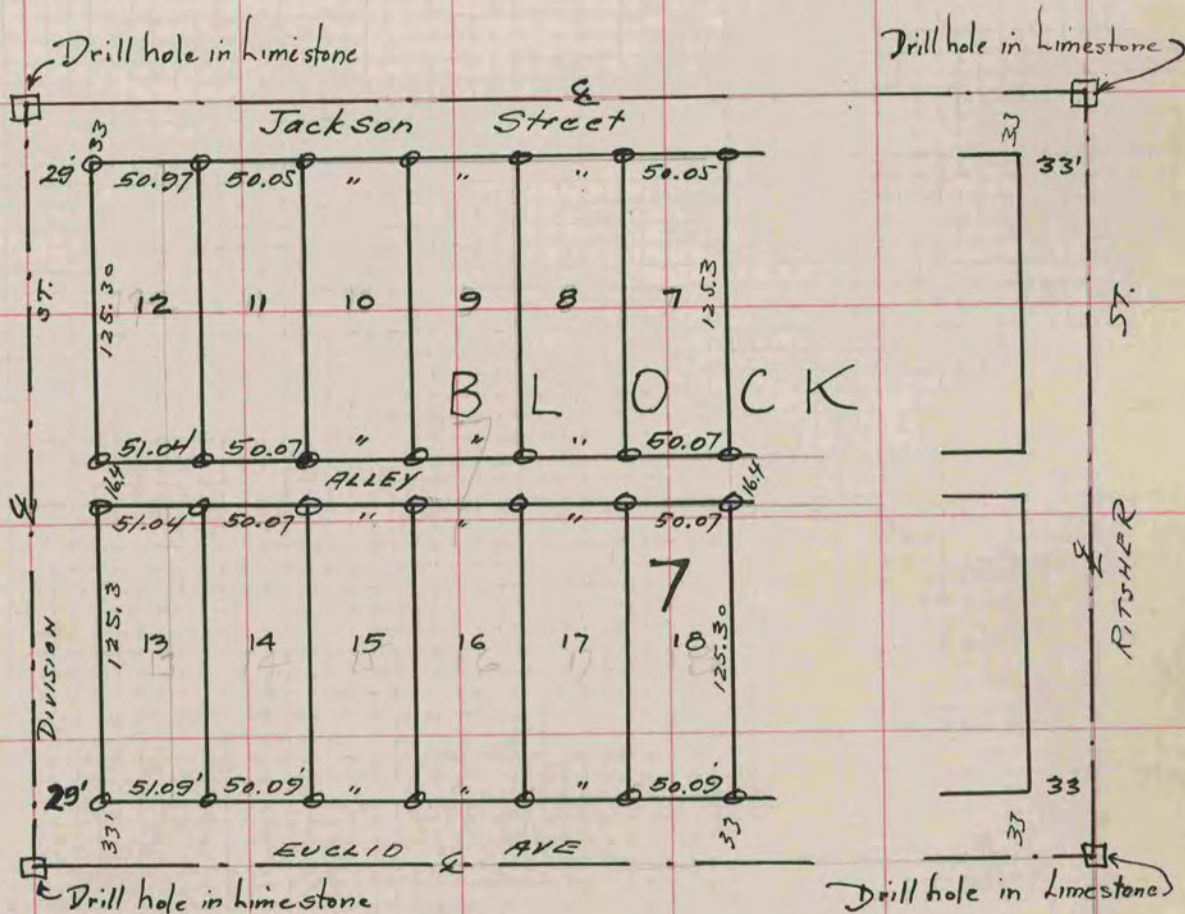 Drill hole in Limistone
Drill hole in Limestone
℄
Jackson Street
33
33
29' 50.97 50.05 " " " 50.05 33'
125.30 12 11 10 9 8 7 125.3
ST.
ST.
BLOCK
51.04 50.07 " " " 50.07
16.4 ALLEY 16.4
℄
51.04 50.07 " " " 50.07
℄
RITSHER
7
125.3 13 14 15 16 17 18 125.30
DIVISION
29' 51.09' 50.09' " " " 50.09' 33
33' 33 33
EUCLID ℄ AVE
Drill hole in Limestone
Drill hole in Limestone